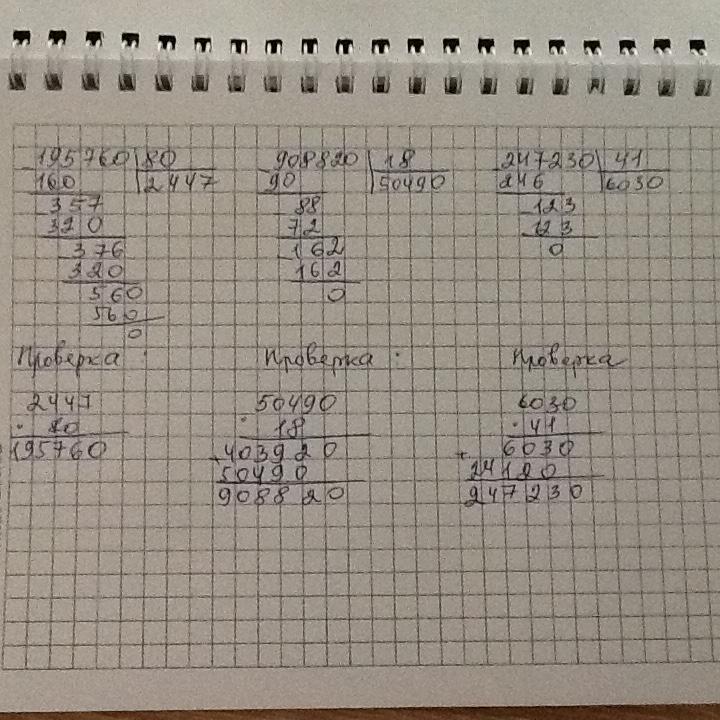 195760 80
160 2447
357
320
376
320
560
560
0
908820 18
90 50490
88
72
162
162
0
247230 41
246 6030
123
123
0
Проверка:
2447
· 80
195760
Проверка:
50490
· 18
+403920
50490
908820
Проверка
6030
· 41
+ 6030
24120
247230